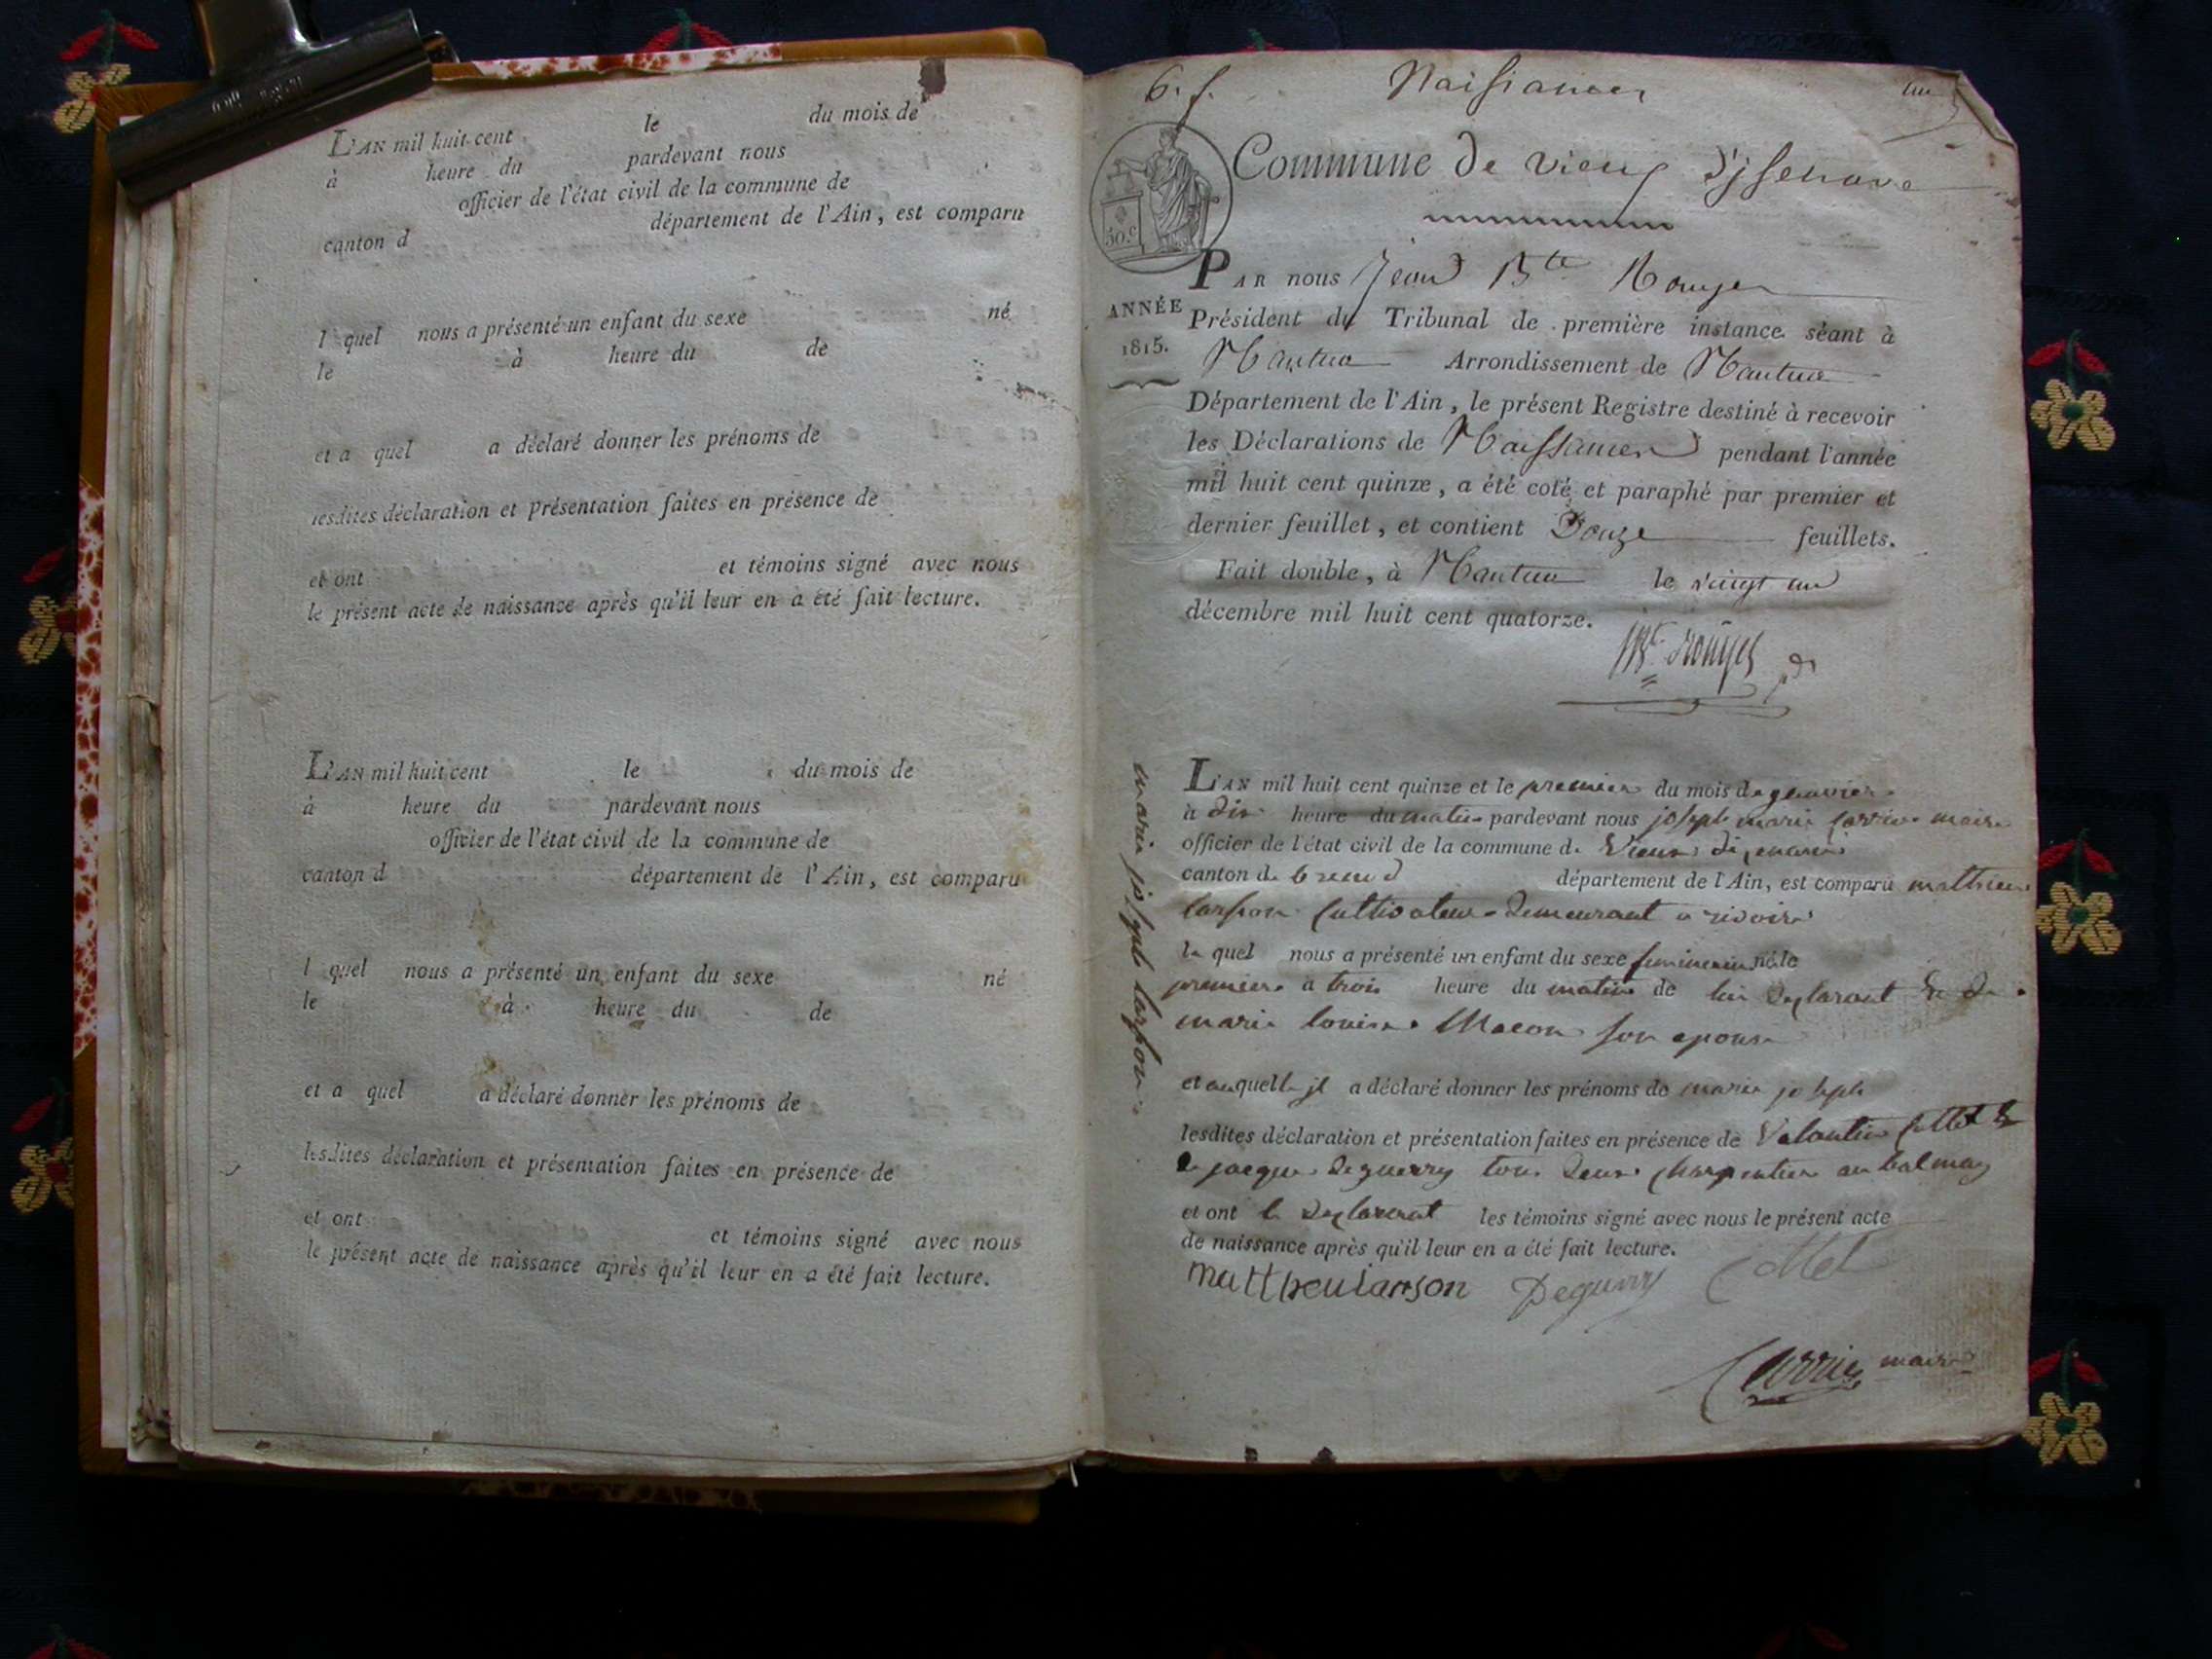 L'AN mil huit cent le du mois de
à heure du pardevant nous
officier de l'état civil de la commune de
canton d département de l'Ain, est comparu
l quel nous a présenté un enfant du sexe né
le à heure du de
et a quel a déclaré donner les prénoms de
lesdites déclaration et présentation faites en présence de
et ont et témoins signé avec nous
le présent acte de naissance après qu'il leur en a été fait lecture.
L'AN mil huit cent le du mois de
à heure du pardevant nous
officier de l'état civil de la commune de
canton d département de l'Ain, est comparu
l quel nous a présenté un enfant du sexe né
le à heure du de
et a quel a déclaré donner les prénoms de
lesdites déclaration et présentation faites en présence de
et ont et témoins signé avec nous
le présent acte de naissance après qu'il leur en a été fait lecture.
6. f. Naissances un
Commune de vieux d'jsenave
50.c
PAR nous Jean Bte Rouyer
ANNÉE
1815.
Président du Tribunal de première instance séant à
Nantua Arrondissement de Nantua
Département de l'Ain, le présent Registre destiné à recevoir
les Déclarations de Naissances pendant l'année
mil huit cent quinze, a été coté et paraphé par premier et
dernier feuillet, et contient Douze feuillets.
Fait double, à Nantua le vingt un
décembre mil huit cent quatorze.
JBte Rouyer
marie joseph larson
L'AN mil huit cent quinze et le premier du mois de genvier
à dix heure du matin pardevant nous joseph marie carrier maire
officier de l'état civil de la commune de Vieux dizenave
canton de brenod département de l'Ain, est comparu mathieu
larson cultivateur demeurant a rivoire
le quel nous a présenté un enfant du sexe femineain né le
premier à trois heure du matin de lui declarant et de
marie louise Macon son epouse
et auquelle jl a déclaré donner les prénoms de marie joseph
lesdites déclaration et présentation faites en présence de Valantin cottet et
de jacque deguerry tous deux charpentier au balmay
et ont le declarant les témoins signé avec nous le présent acte
de naissance après qu'il leur en a été fait lecture.
mattheu larson Deguerry Cottet
Carrier maire